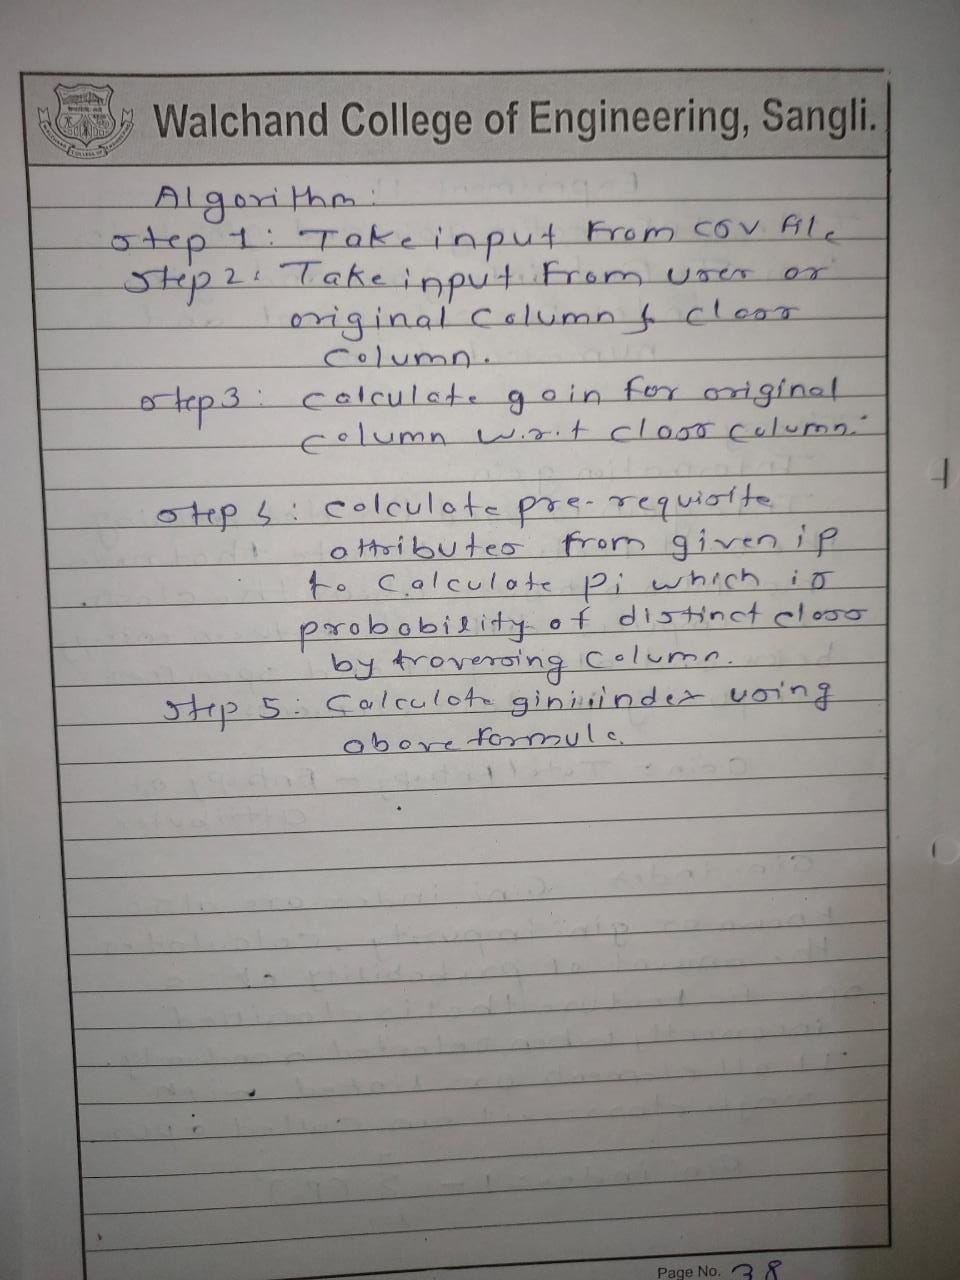 Walchand College of Engineering, Sangli.
Algorithm:
Step 1: Take input From CSV File
Step 2: Take input From user as
original Column & class
Column.
Step 3: Calculate gain for original
Column w.r.t class column.
Step 4: Calculate pre-requisite
attributes from given ip
to Calculate Pi which is
probability of distinct class
by traversing Column.
Step 5: Calculate gini index using
above formula.
Page No. 38